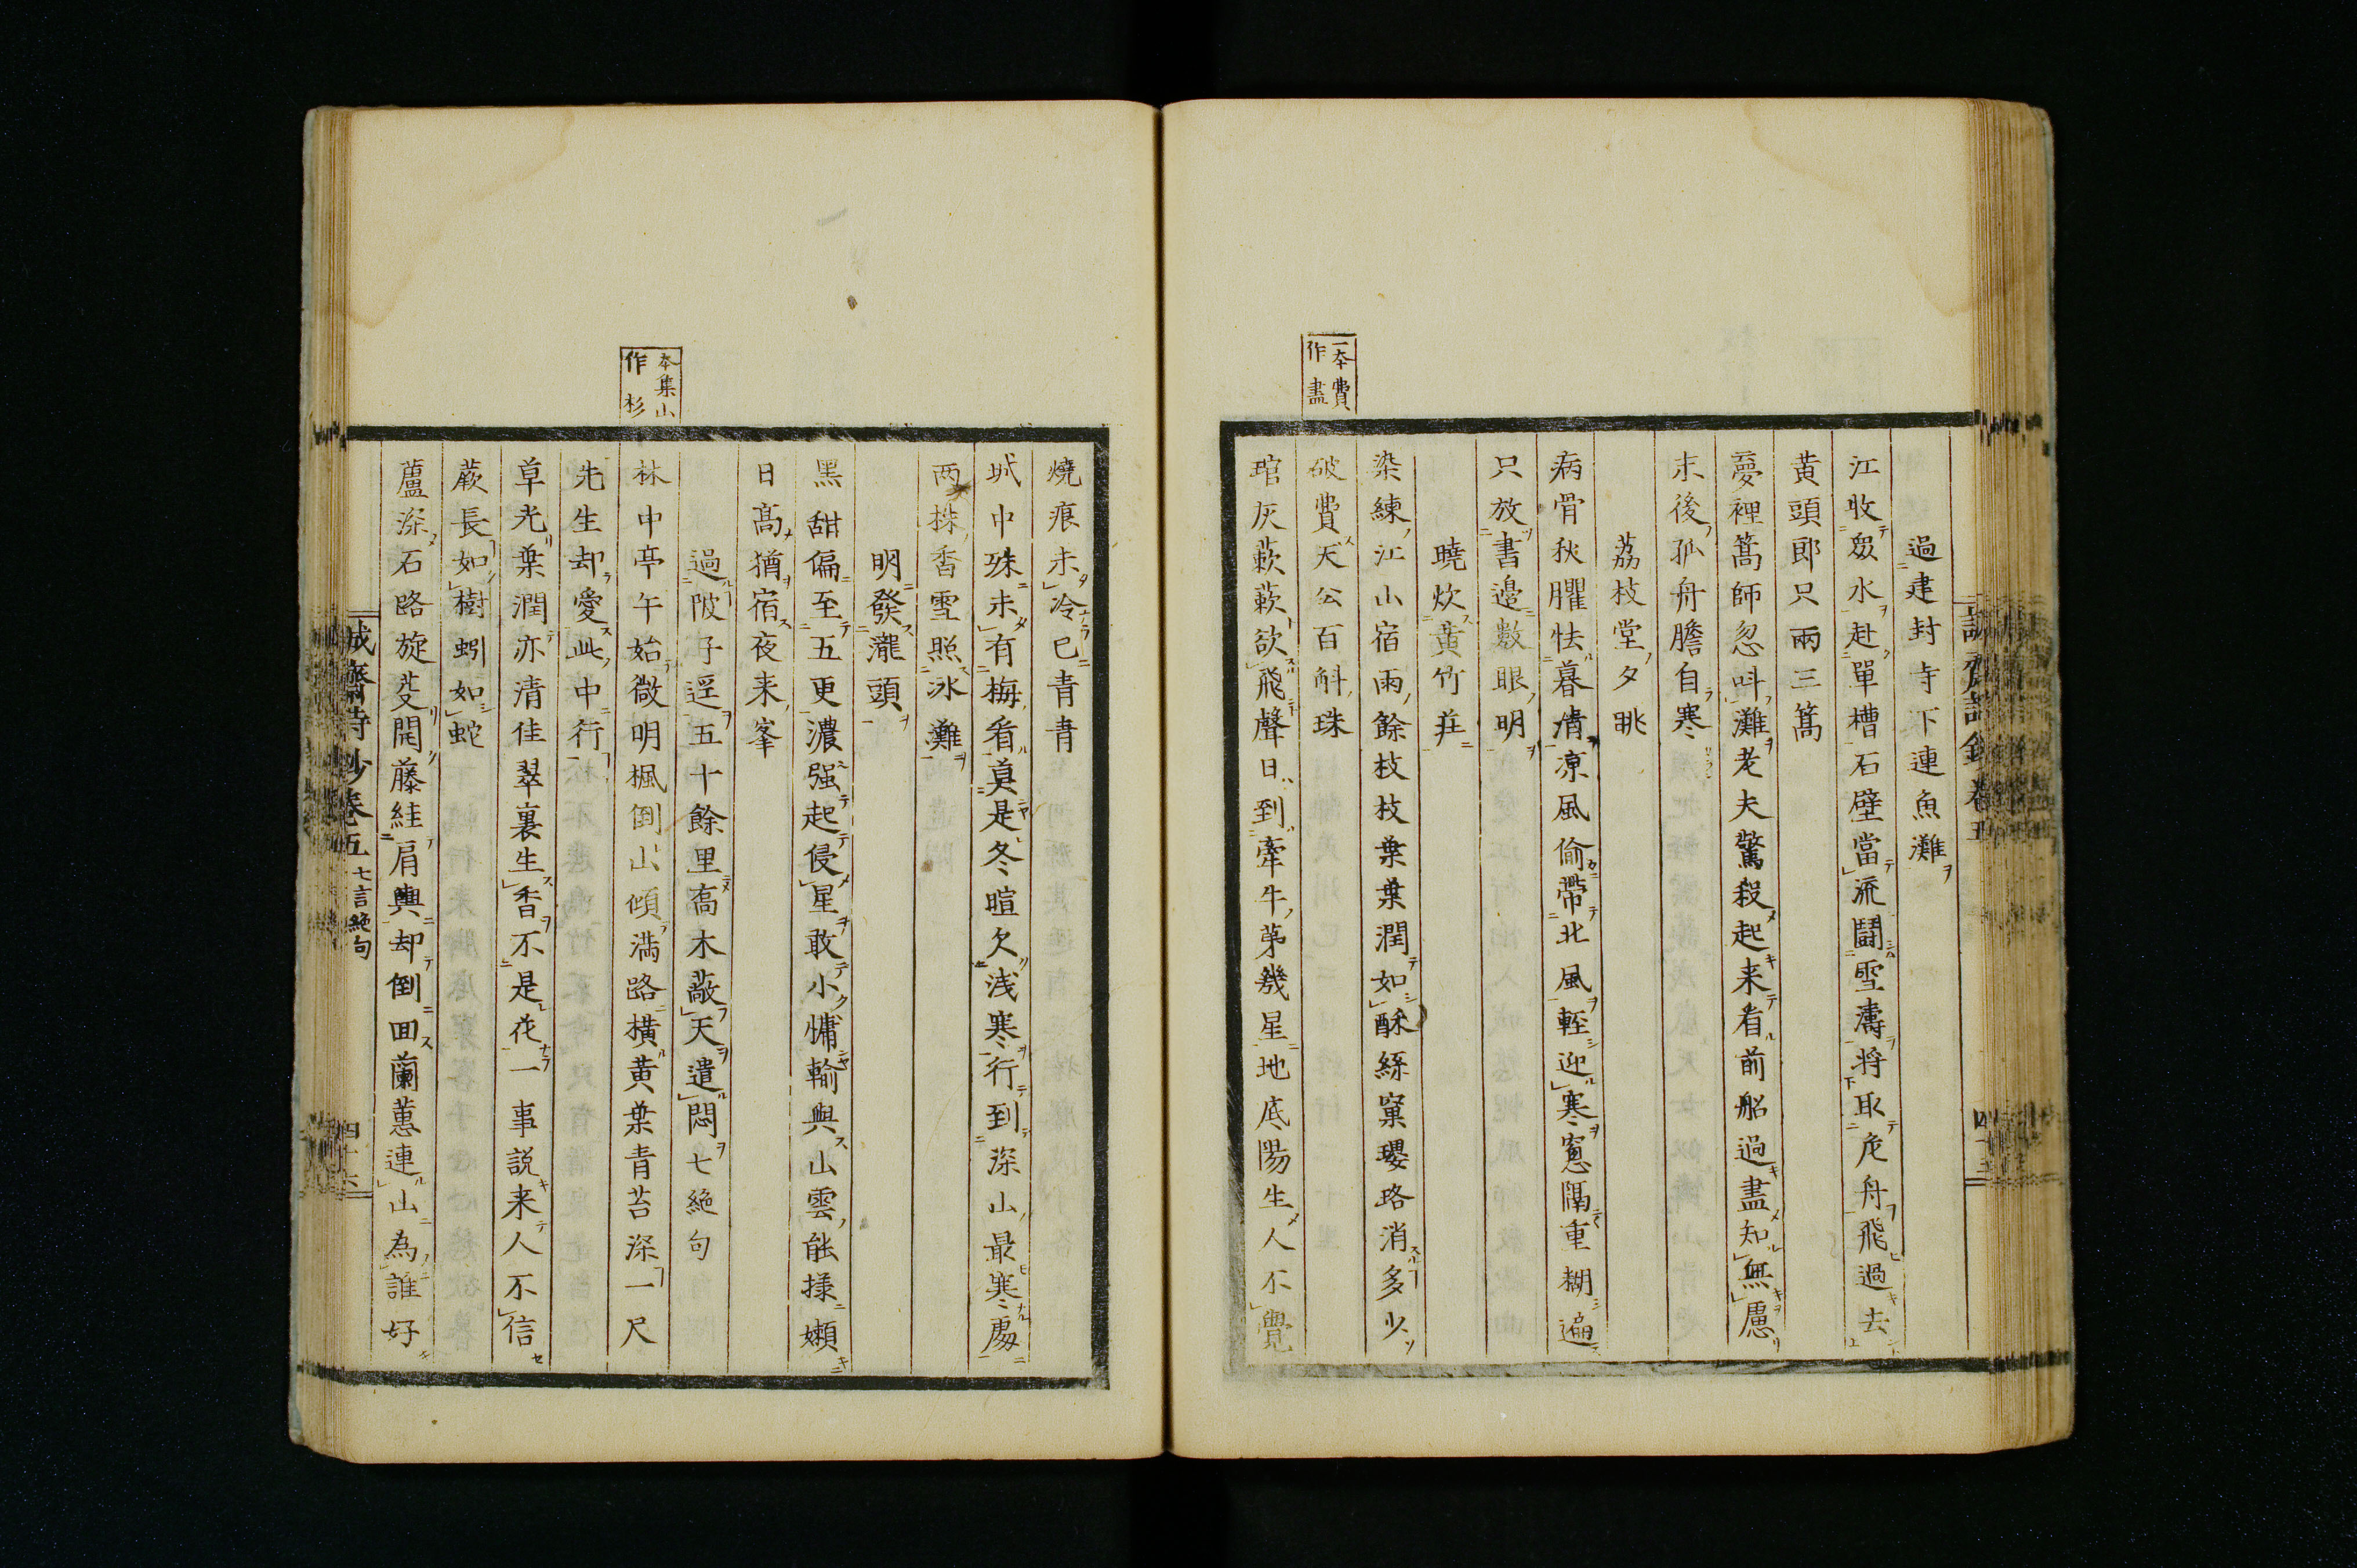 過建封寺下連魚灘
江收衆水赴單槽石壁當流鬪雪濤将取危舟飛過去
黄頭郎只兩三篙
夢裡篙師忽呌灘老夫驚殺起来看前船過盡知無慮
末後孤舟膽自寒
荔枝堂夕眺
病骨秋臞怯暮清凉風偷帶北風軽迎寒窓隔重糊遍
只放書邉數眼明
曉炊黄竹荘
染練江山宿雨餘枝枝葉葉潤如酥絲窠瓔珞消多少
一本費
作盡
破費天公百斛珠
琯灰蔌蔌欲飛聲日到牽牛第幾星地底陽生人不覺
燒痕未冷已青青
城中殊未有梅看真是冬暄欠浅寒行到深山最寒處
两株香雪照冰灘
明發瀧頭
黑甜偏至五更濃强起侵星敢小慵輸與山雲能様嬾
日髙猶宿夜来峯
過陂子逕五十餘里髙木蔽天遣悶七絶句
本集山
作杉
林中亭午始微明楓倒山傾満路横黄葉青苔深一尺
先生却愛此中行
草光葉潤亦清佳翠裏生香不是花一事説来人不信
蕨長如樹蚓如蛇
蘆深石路旋芟開藤絓肩輿却倒囬蘭蕙連山為誰好
誠齋詩鈔卷五 七言絶句